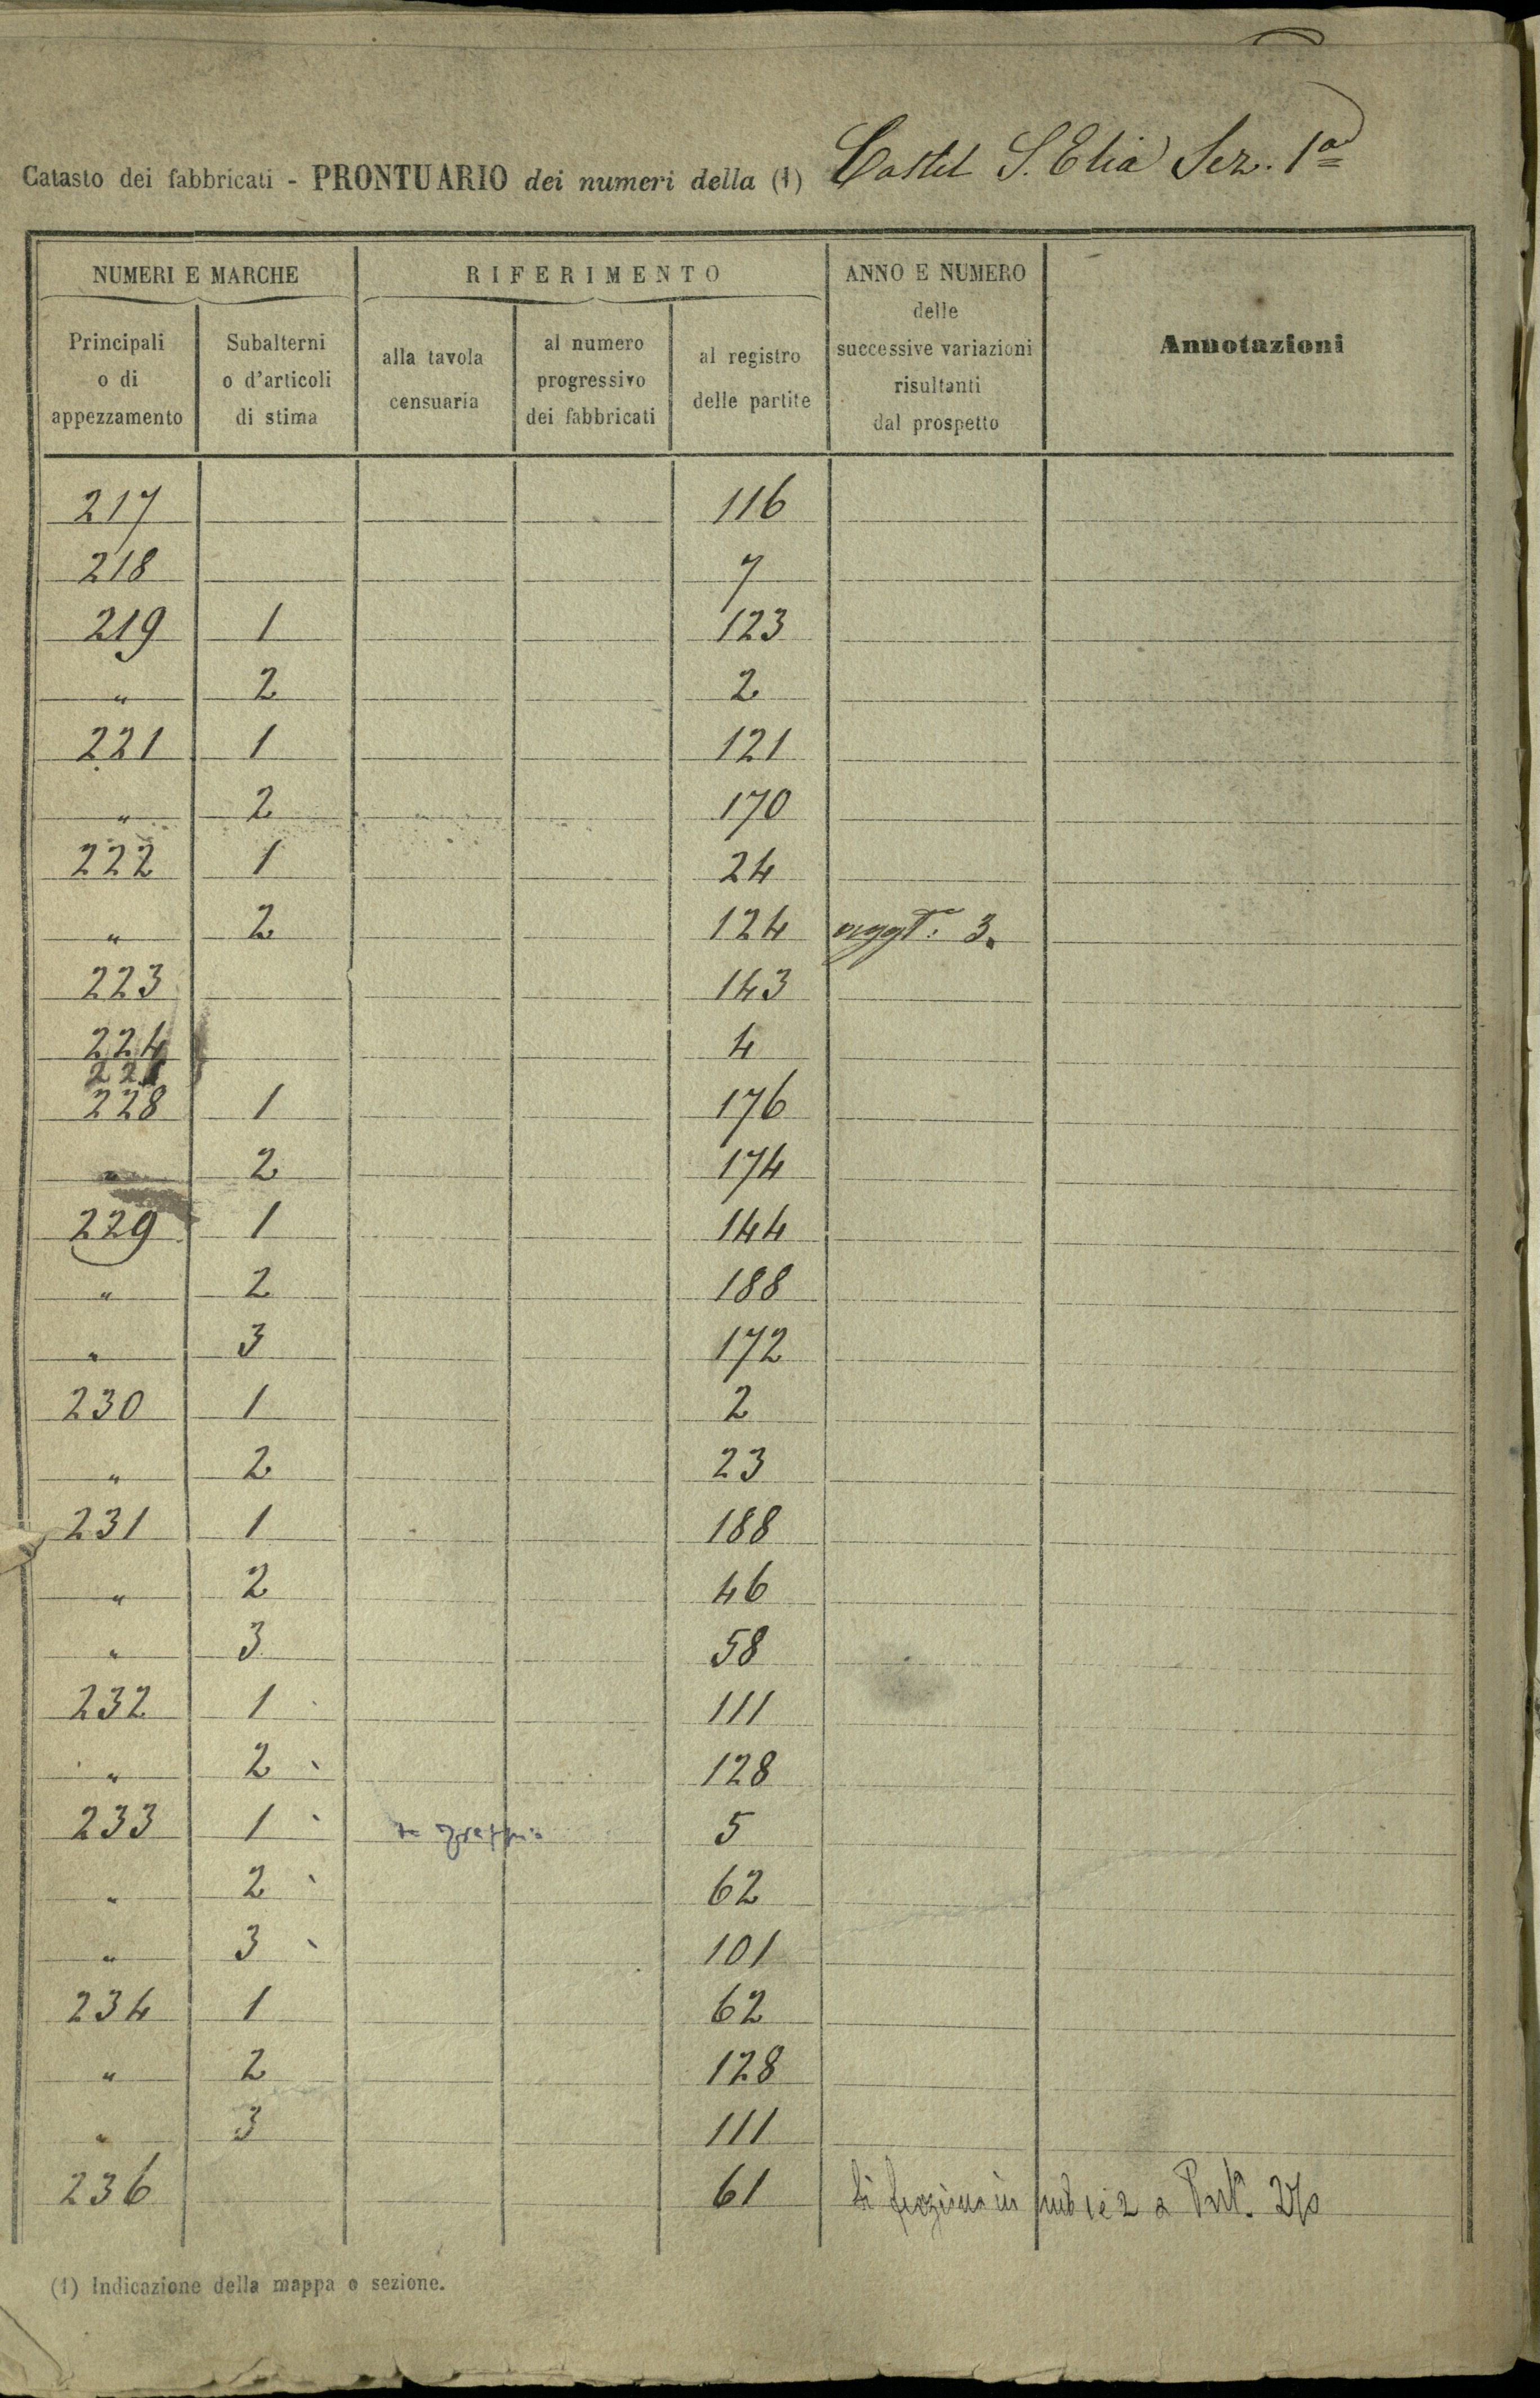 Catasto dei fabbricati - PRONTUARIO dei numeri della (1) Castel S. Elia Sez. 1ª
NUMERI E MARCHE RIFERIMENTO ANNO E NUMERO delle successive variazioni risultanti dal prospetto Annotazioni
Principali o di appezzamento Subalterni o d'articoli di stima alla tavola censuaria al numero progressivo dei fabbricati al registro delle partite
217 116
218 7
219 1 123
" 2 2
221 1 121
" 2 170
222 1 24
" 2 124 aggt. 3.
223 143
224 4
228 1 176
" 2 174
229 1 144
" 2 188
" 3 172
230 1 2
" 2 23
231 1 188
" 2 46
" 3 58
232 1 111
" 2 128
233 1 5
" 2 62
" 3 101
234 1 62
" 2 128
" 3 111
236 61 Si fraziona in sub 1 e 2 a
(1) Indicazione della mappa o sezione.